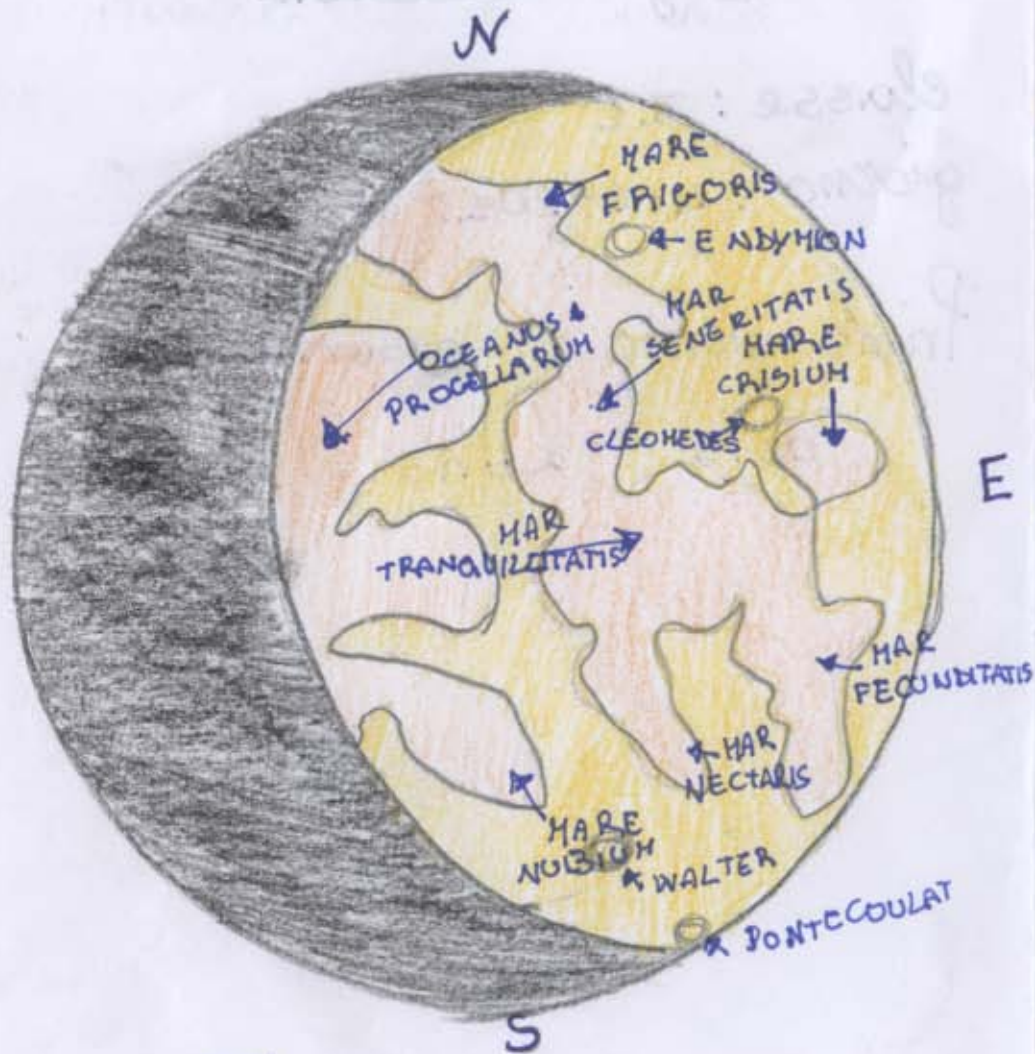 N
MARE
FRIGORIS
ENDYMION
MAR
SENERITATIS
MARE
CRISIUM
OCEANOS
PROCELLARUM
CLEOMEDES
E
MAR
TRANQUILLITATIS
MAR
FECUNDITATIS
MAR
NECTARIS
MARE
NUBIUM
WALTER
PONTECOULAT
S